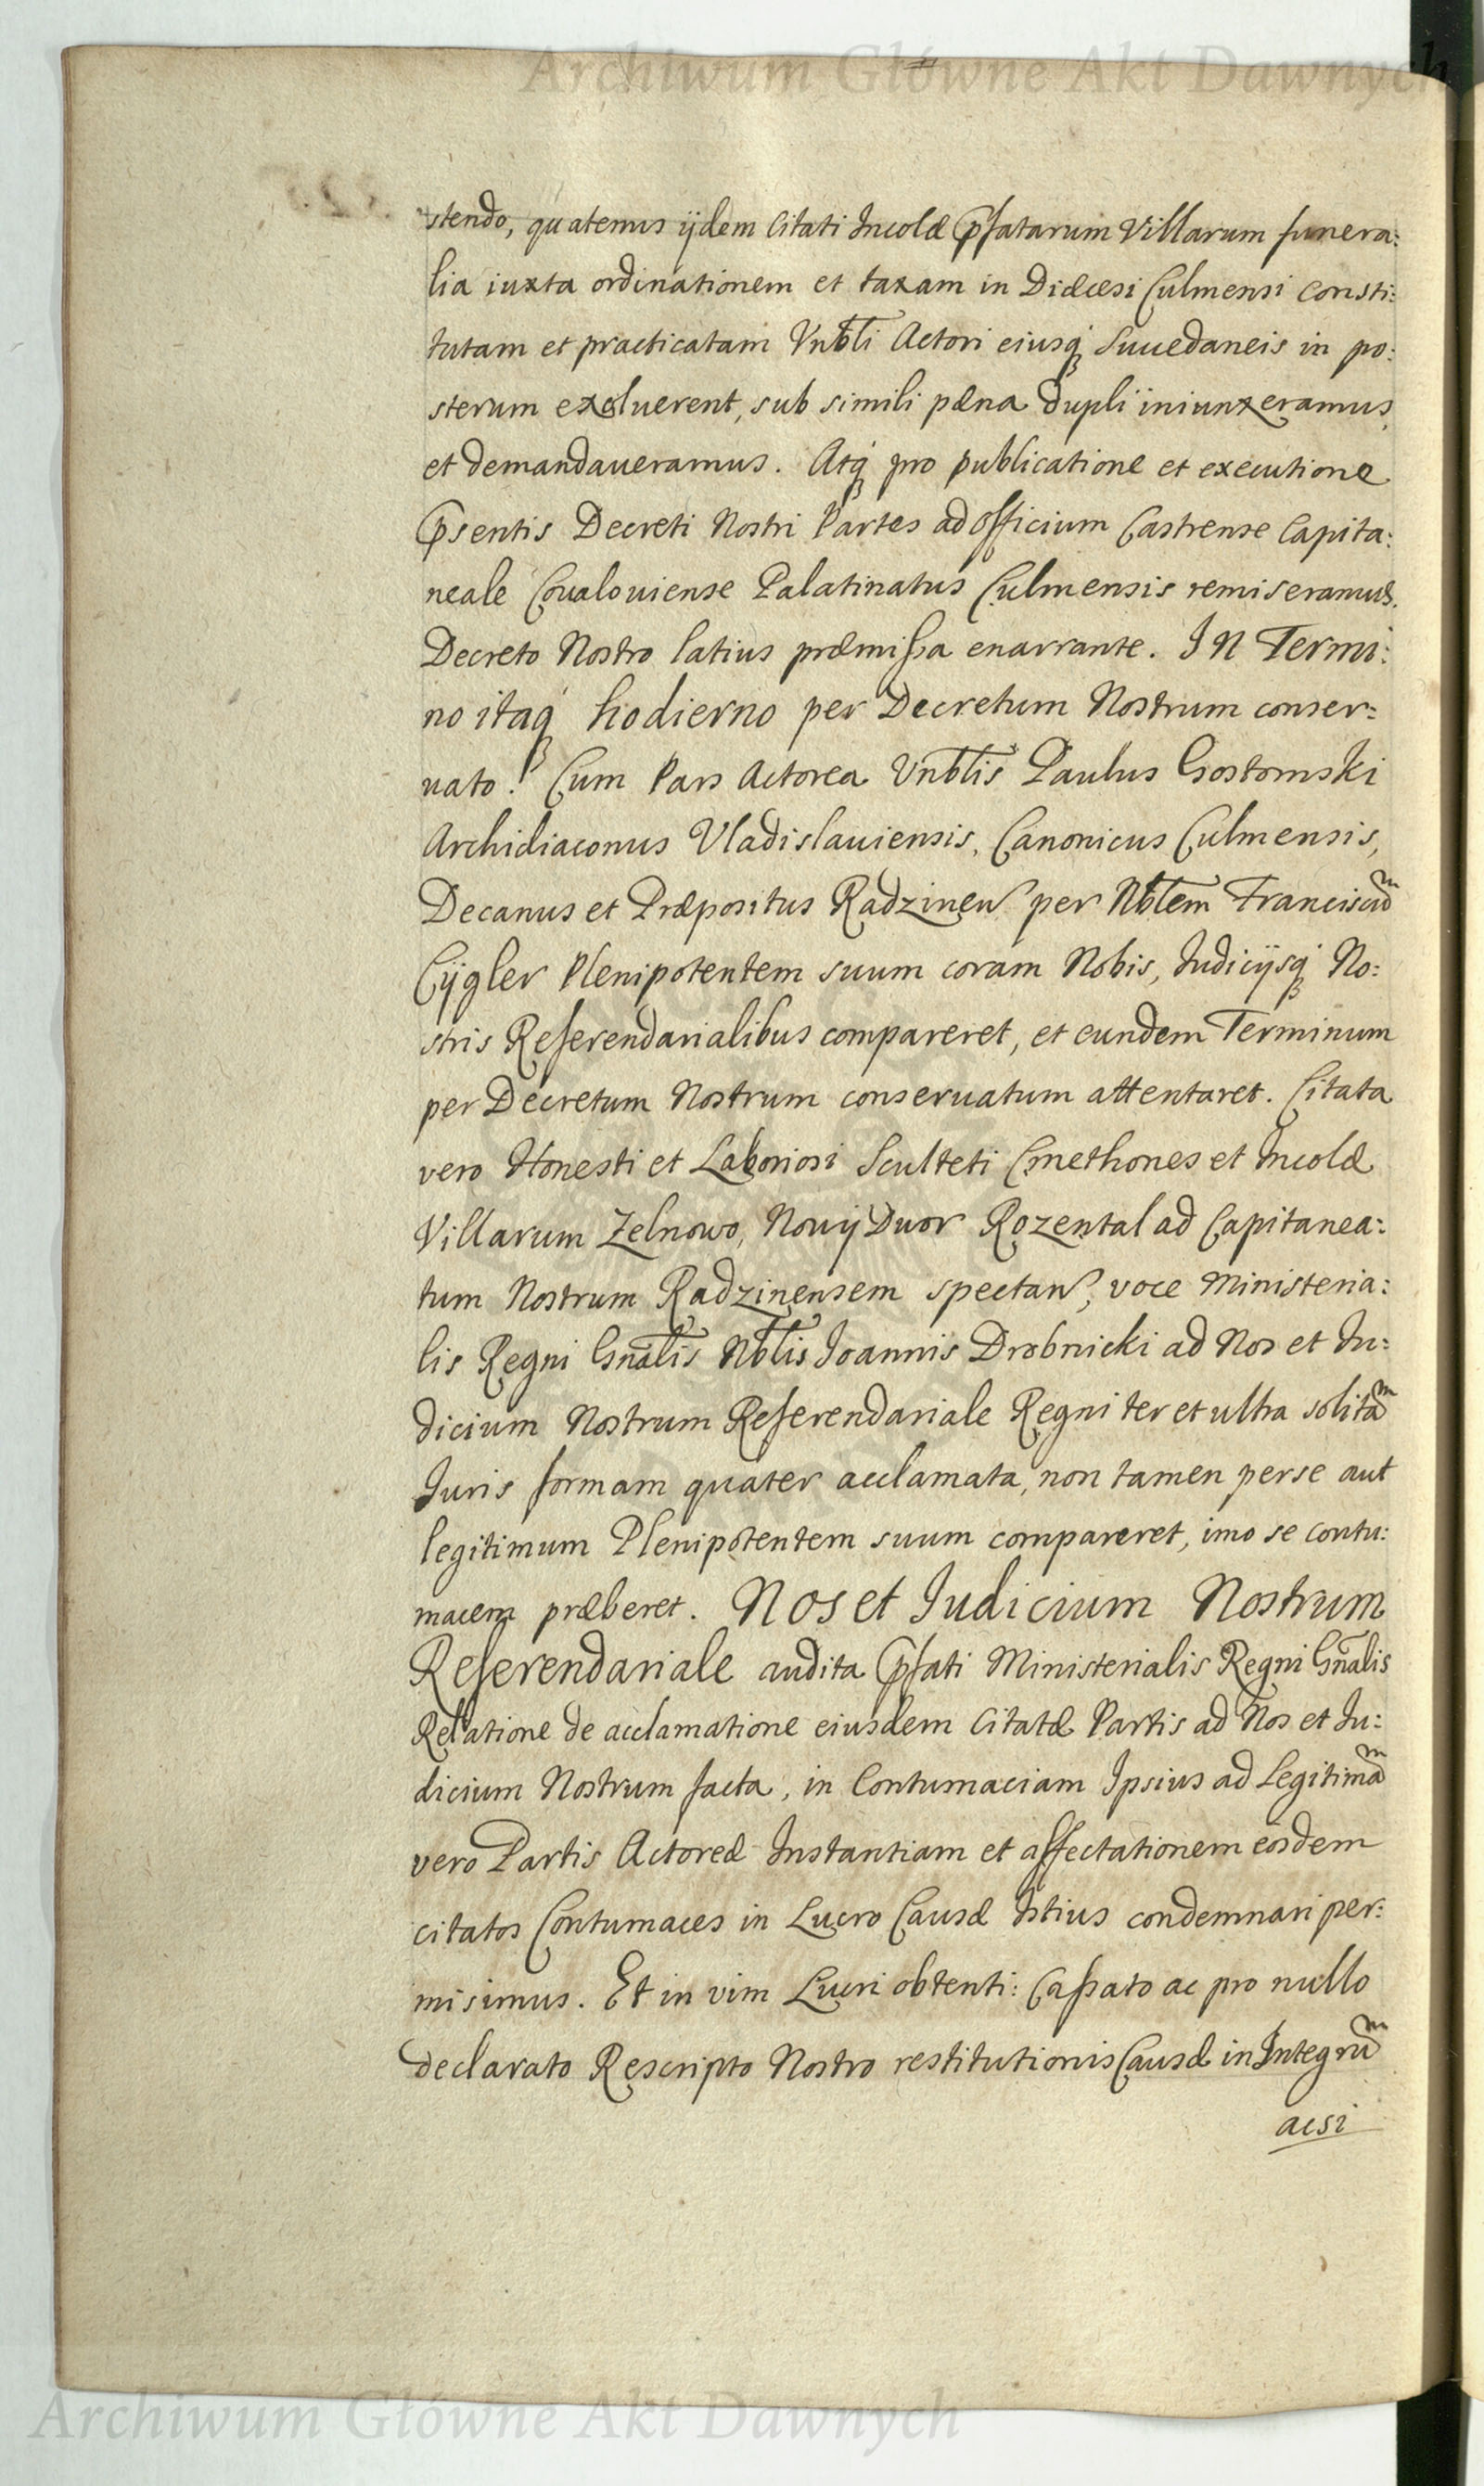 Archiwum Główne Akt Dawnych
stendo, quatenus ijdem Citati Incolæ Pfatarum Villarum funera:
lia iuxta ordinationem et taxam in Diæcesi Culmensi consti:
tutam et practicatam Vnbli Actori eiusq Succedaneis in po:
sterum exoluerent, sub simili pæna dupli iniunxeramus,
et demandaueramus. Atq pro publicatione et executione
Psentis Decreti Nostri Partes ad Officium Castrense Capita:
neale Covaloviense Palatinatus Culmensis remiseramus.
Decreto Nostro latius præmissa enarrante. IN Termi:
no itaq hodierno per Decretum Nostrum conser:
uato! Cum Pars Actorea Vnblis Paulus Gostomski
Archidiaconus Vladislauiensis, Canonicus Culmensis,
Decanus et Præpositus Radzinen per Nblem Franciscum
Cÿgler Plenipotentem suum coram Nobis, Iudicijsq No:
stris Referendarialibus compareret, et eundem Terminum
per Decretum Nostrum conseruatum attentaret. Citata
vero Honesti et Laboriosi Sculteti Cmethones et Incolæ
Villarum Zelnowo, Nowÿ Dwor Rozental ad Capitanea:
tum Nostrum Radzinensem spectan, voce Ministeria:
lis Regni Gnalis Nblis Ioannis Drobnicki ad Nos et Iu:
dicium Nostrum Referendariale Regni ter et ultra solitam
Iuris formam quater acclamata, non tamen per se aut
legitimum Plenipotentem suum compareret, imo se contu:
macem præberet. Nos et Iudicium Nostrum
Referendariale audita Pfati Ministerialis Regni Gnalis
Relatione de acclamatione eiusdem Citatæ Partis ad Nos et Iu:
dicium Nostrum facta, in Contumaciam Ipsius ad Legitimam
vero Partis Actoreæ Instantiam et affectationem eosdem
citatos Contumaces in Lucro Causæ Istius condemnari per:
misimus. Et in vim Lucri obtenti: Cassato ac pro nullo
declarato Rescripto Nostro restitutionis Causæ in Integrum
acsi
Archiwum Główne Akt Dawnych